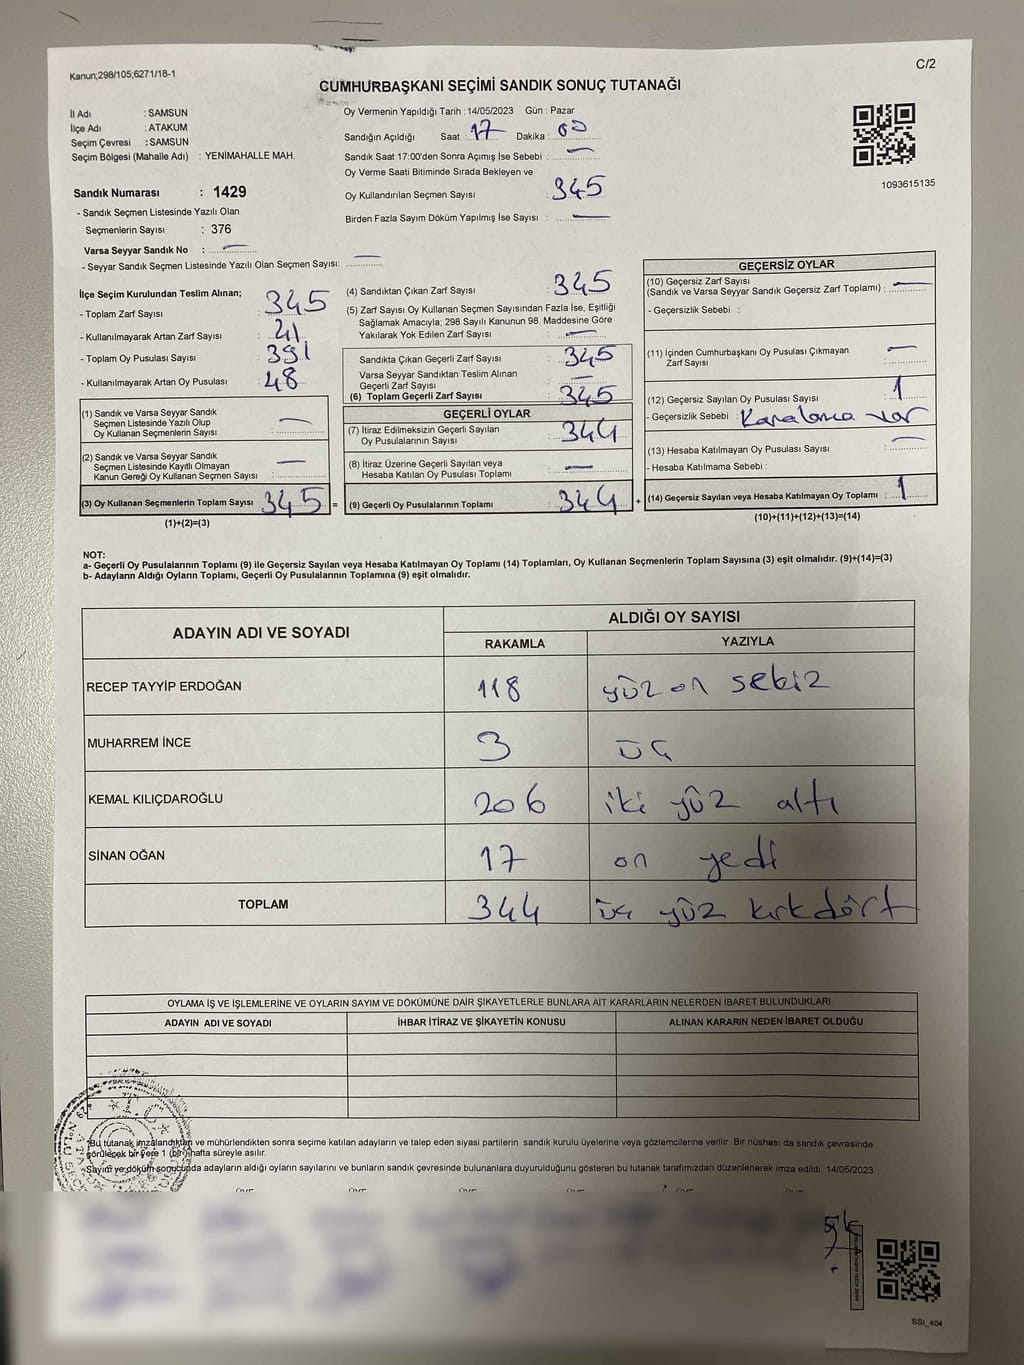 Kanun;298/105;6271/18-1
C/2
CUMHURBAŞKANI SEÇİMİ SANDIK SONUÇ TUTANAĞI
İl Adı : SAMSUN
İlçe Adı : ATAKUM
Seçim Çevresi : SAMSUN
Seçim Bölgesi (Mahalle Adı) : YENİMAHALLE MAH.
Sandık Numarası : 1429
- Sandık Seçmen Listesinde Yazılı Olan
Seçmenlerin Sayısı : 376
Varsa Seyyar Sandık No : —
- Seyyar Sandık Seçmen Listesinde Yazılı Olan Seçmen Sayısı: —
Oy Vermenin Yapıldığı Tarih : 14/05/2023 Gün : Pazar
Sandığın Açıldığı Saat : 17 Dakika : 00
Sandık Saat 17:00'den Sonra Açımış İse Sebebi : —
Oy Verme Saati Bitiminde Sırada Bekleyen ve
Oy Kullandırılan Seçmen Sayısı : 345
Birden Fazla Sayım Döküm Yapılmış İse Sayısı : —
1093615135
İlçe Seçim Kurulundan Teslim Alınan;
- Toplam Zarf Sayısı : 345
- Kullanılmayarak Artan Zarf Sayısı : 41
- Toplam Oy Pusulası Sayısı : 391
- Kullanılmayarak Artan Oy Pusulası : 48
(1) Sandık ve Varsa Seyyar Sandık
Seçmen Listesinde Yazılı Olup
Oy Kullanan Seçmenlerin Sayısı : —
(2) Sandık ve Varsa Seyyar Sandık
Seçmen Listesinde Kayıtlı Olmayan
Kanun Gereği Oy Kullanan Seçmen Sayısı : —
(3) Oy Kullanan Seçmenlerin Toplam Sayısı 345 =
(1)+(2)=(3)
(4) Sandıktan Çıkan Zarf Sayısı : 345
(5) Zarf Sayısı Oy Kullanan Seçmen Sayısından Fazla İse, Eşitliği
Sağlamak Amacıyla; 298 Sayılı Kanunun 98. Maddesine Göre
Yakılarak Yok Edilen Zarf Sayısı : —
Sandıkta Çıkan Geçerli Zarf Sayısı : 345
Varsa Seyyar Sandıktan Teslim Alınan
Geçerli Zarf Sayısı : —
(6) Toplam Geçerli Zarf Sayısı : 345
GEÇERLİ OYLAR
(7) İtiraz Edilmeksizin Geçerli Sayılan
Oy Pusulalarının Sayısı : 344
(8) İtiraz Üzerine Geçerli Sayılan veya
Hesaba Katılan Oy Pusulası Toplamı : —
(9) Geçerli Oy Pusulalarının Toplamı : 344 +
GEÇERSİZ OYLAR
(10) Geçersiz Zarf Sayısı
(Sandık ve Varsa Seyyar Sandık Geçersiz Zarf Toplamı) : —
- Geçersizlik Sebebi :
(11) İçinden Cumhurbaşkanı Oy Pusulası Çıkmayan
Zarf Sayısı : —
(12) Geçersiz Sayılan Oy Pusulası Sayısı : 1
- Geçersizlik Sebebi : Karalama var
(13) Hesaba Katılmayan Oy Pusulası Sayısı : —
- Hesaba Katılmama Sebebi :
(14) Geçersiz Sayılan veya Hesaba Katılmayan Oy Toplamı : 1
(10)+(11)+(12)+(13)=(14)
NOT:
a- Geçerli Oy Pusulalarının Toplamı (9) ile Geçersiz Sayılan veya Hesaba Katılmayan Oy Toplamı (14) Toplamları, Oy Kullanan Seçmenlerin Toplam Sayısına (3) eşit olmalıdır. (9)+(14)=(3)
b- Adayların Aldığı Oyların Toplamı, Geçerli Oy Pusulalarının Toplamına (9) eşit olmalıdır.
ADAYIN ADI VE SOYADI ALDIĞI OY SAYISI
RAKAMLA YAZIYLA
RECEP TAYYİP ERDOĞAN 118 yüz on sekiz
MUHARREM İNCE 3 üç
KEMAL KILIÇDAROĞLU 206 iki yüz altı
SİNAN OĞAN 17 on yedi
TOPLAM 344 üç yüz kırkdört
OYLAMA İŞ VE İŞLEMLERİNE VE OYLARIN SAYIM VE DÖKÜMÜNE DAİR ŞİKAYETLERLE BUNLARA AİT KARARLARIN NELERDEN İBARET BULUNDUKLARI
ADAYIN ADI VE SOYADI İHBAR İTİRAZ VE ŞİKAYETİN KONUSU ALINAN KARARIN NEDEN İBARET OLDUĞU
Bu tutanak imzalandıktan ve mühürlendikten sonra seçime katılan adayların ve talep eden siyasi partilerin sandık kurulu üyelerine veya gözlemcilerine verilir. Bir nüshası da sandık çevresinde
görülecek bir yere 1 (bir) hafta süreyle asılır.
Sayım ve döküm sonucunda adayların aldığı oyların sayılarını ve bunların sandık çevresinde bulunanlara duyurulduğunu gösteren bu tutanak tarafımızdan düzenlenerek imza edildi. 14/05/2023
T.C.
SSI_404